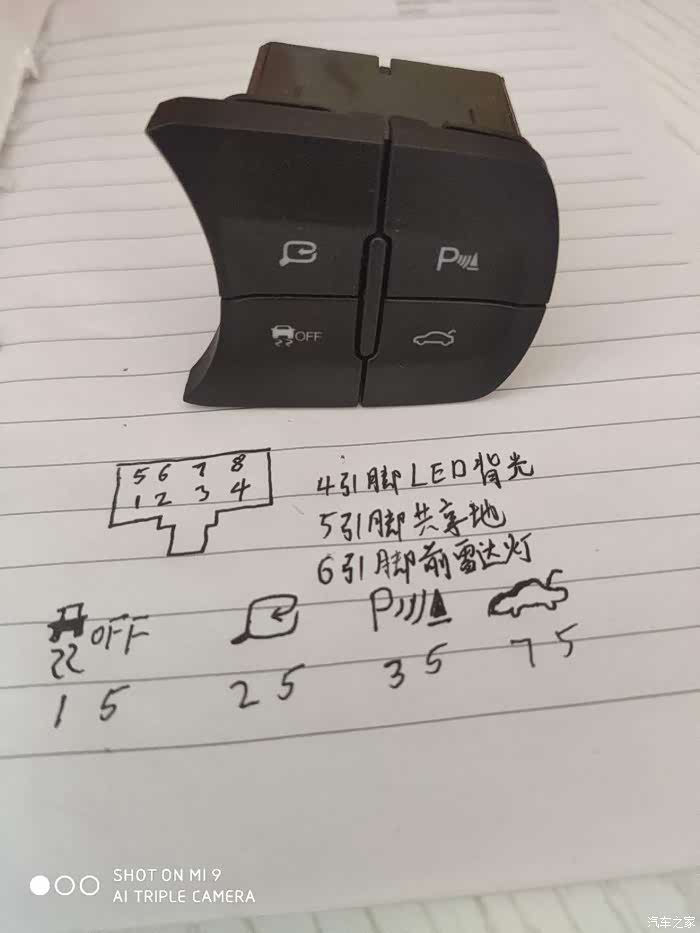 P
OFF
5 6 7 8
1 2 3 4
4引脚LED背光
5引脚共享地
6引脚前雷达灯
OFF
P
1 5
2 5
3 5
7 5
SHOT ON MI 9
AI TRIPLE CAMERA
汽车之家